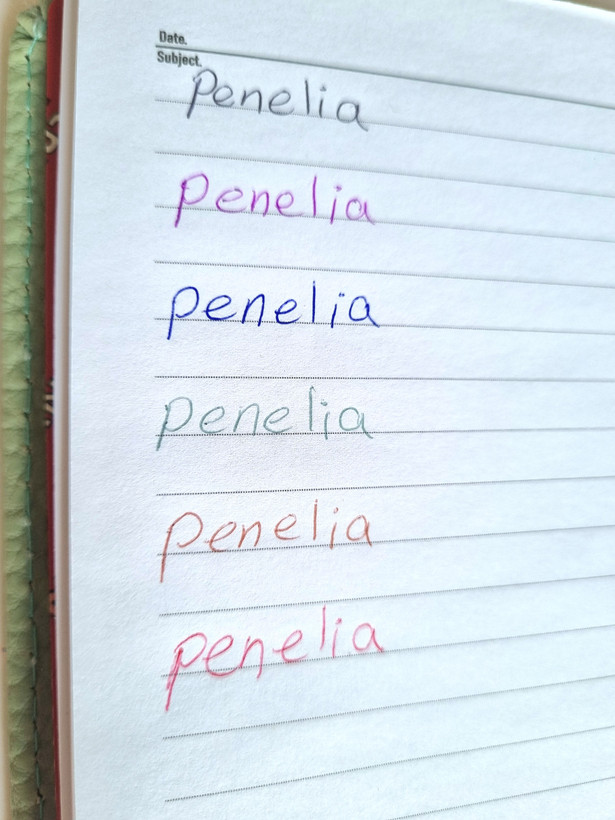 Date.
Subject.
Penelia
Penelia
penelia
penelia
penelia
penelia